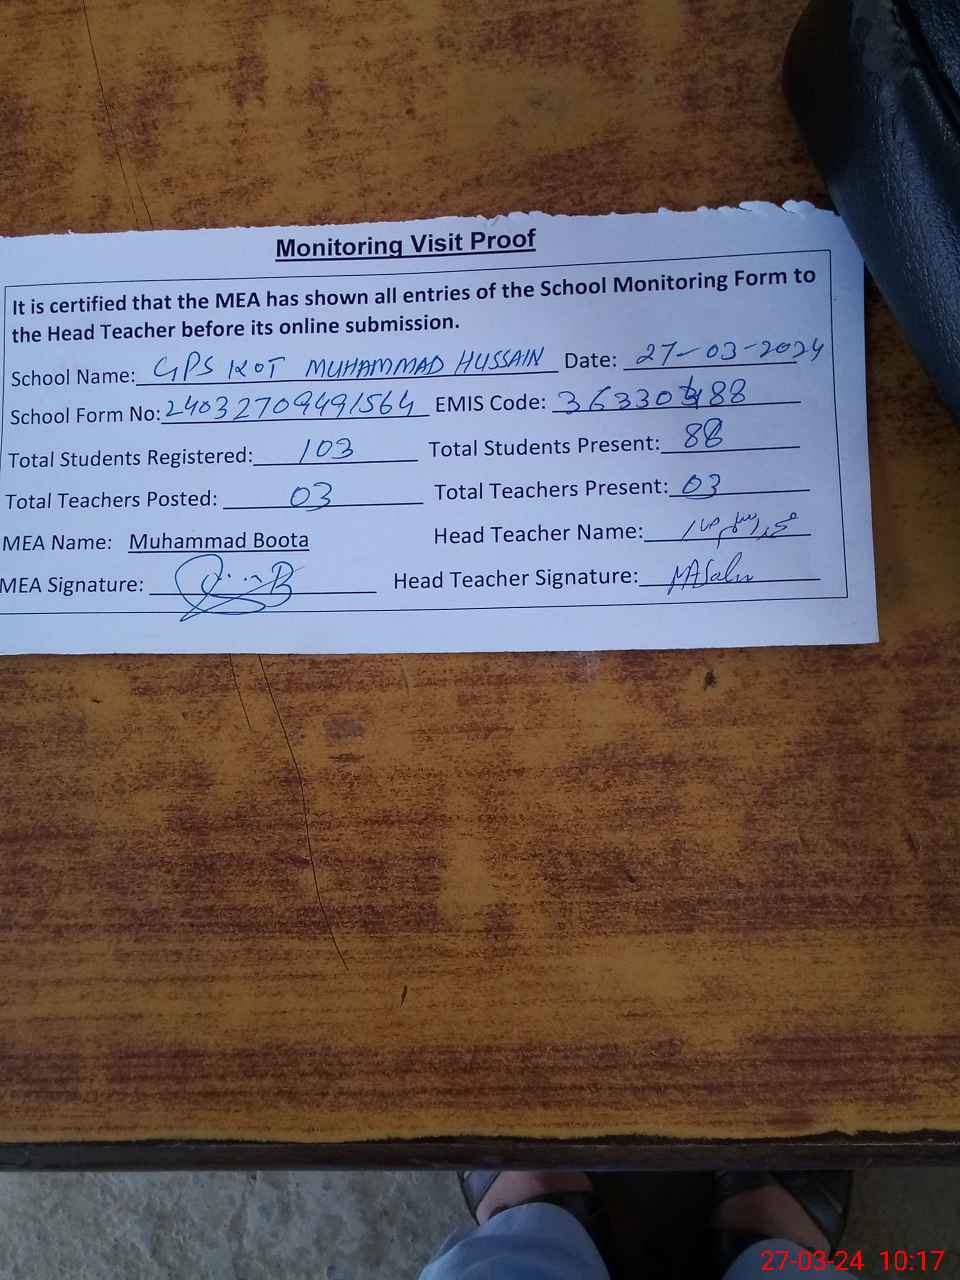 Monitoring Visit Proof
It is certified that the MEA has shown all entries of the School Monitoring Form to
the Head Teacher before its online submission.
School Name: GPS KOT MUHAMMAD HUSSAIN Date: 27-03-2024
School Form No: 24032709491564 EMIS Code:
Total Students Registered: 103 Total Students Present: 88
Total Teachers Posted: 03 Total Teachers Present: 03
MEA Name: Muhammad Boota Head Teacher Name:
MEA Signature: Head Teacher Signature: MASalm
27-03-24 10:17